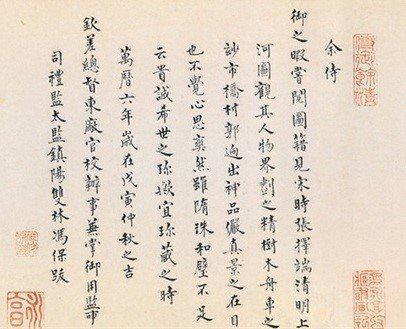 余侍
御之暇嘗閱圖籍見宋時張擇端清明上
河圖觀其人物界劃之精樹木舟車之
玅市橋村郭迥出神品儼真景之在目
也不覺心思爽然雖隋珠和璧不足
云貴誠希世之珍歟宜珍藏之時
萬曆六年歲在戊寅仲秋之吉
欽差總督東廠官校辦事兼掌御用監事
司禮監太監鎮陽雙林馮保跋